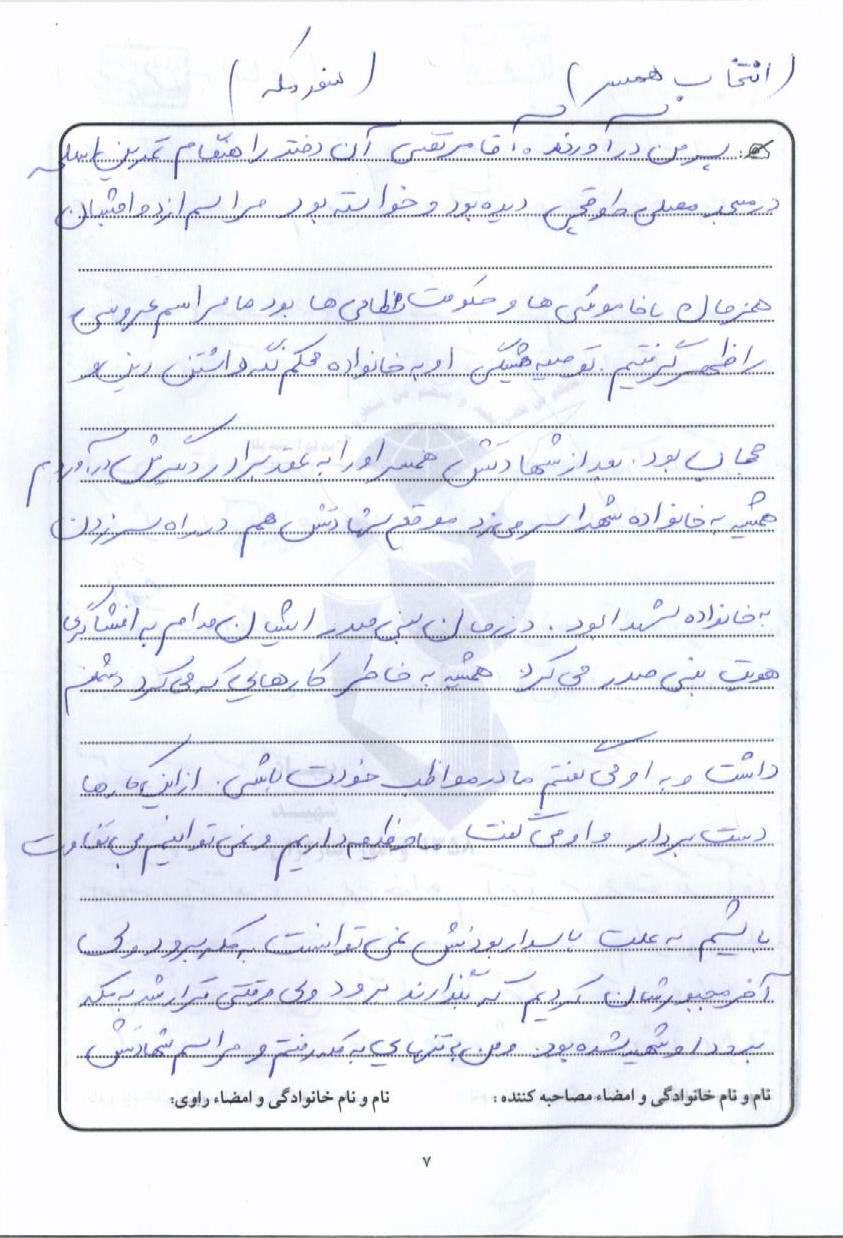 (انتخاب همسر) (سفر مکه)
پسر من در آوردند. آقا مرتضی آن دختر را هنگام تمرین اسلحه
در مسجد مصلی طوقچی دیده بود و خواسته بود مراسم ازدواجشان
همزمان با خاموشی ها و حکومت نظامی ها بود ما مراسم عروسی
را ظهر گرفتیم. توصیه همیشگی او به خانواده محکم نگه داشتن دین و
حجاب بود. بعد از شهادتش همسر او را به عقد برادر دیگرش در آوردیم
همیشه به خانواده شهدا سر می زد موقع شهادتش هم در راه سر زدن
به خانواده شهدا بود. در زمان بنی صدر ایشان مدام به افشاگری
هویت بنی صدر می کرد همیشه به خاطر کارهایی که می کرد دشمن
داشت و به او می گفتم مادر مواظب خودت باش. از این کارها
دست بردار و او می گفت ما وظیفه داریم و نمی توانیم بی تفاوت
باشیم به علت پاسدار بودنش نمی توانست به مکه برود ولی
آخر مجبورشان کردیم که بگذارند برود ولی وقتی قرار شد به مکه
برود او شهید شده بود. و من به تنهایی به مکه رفتم و مراسم شهادتش
نام و نام خانوادگی و امضاء مصاحبه کننده : نام و نام خانوادگی و امضاء راوی:
۷